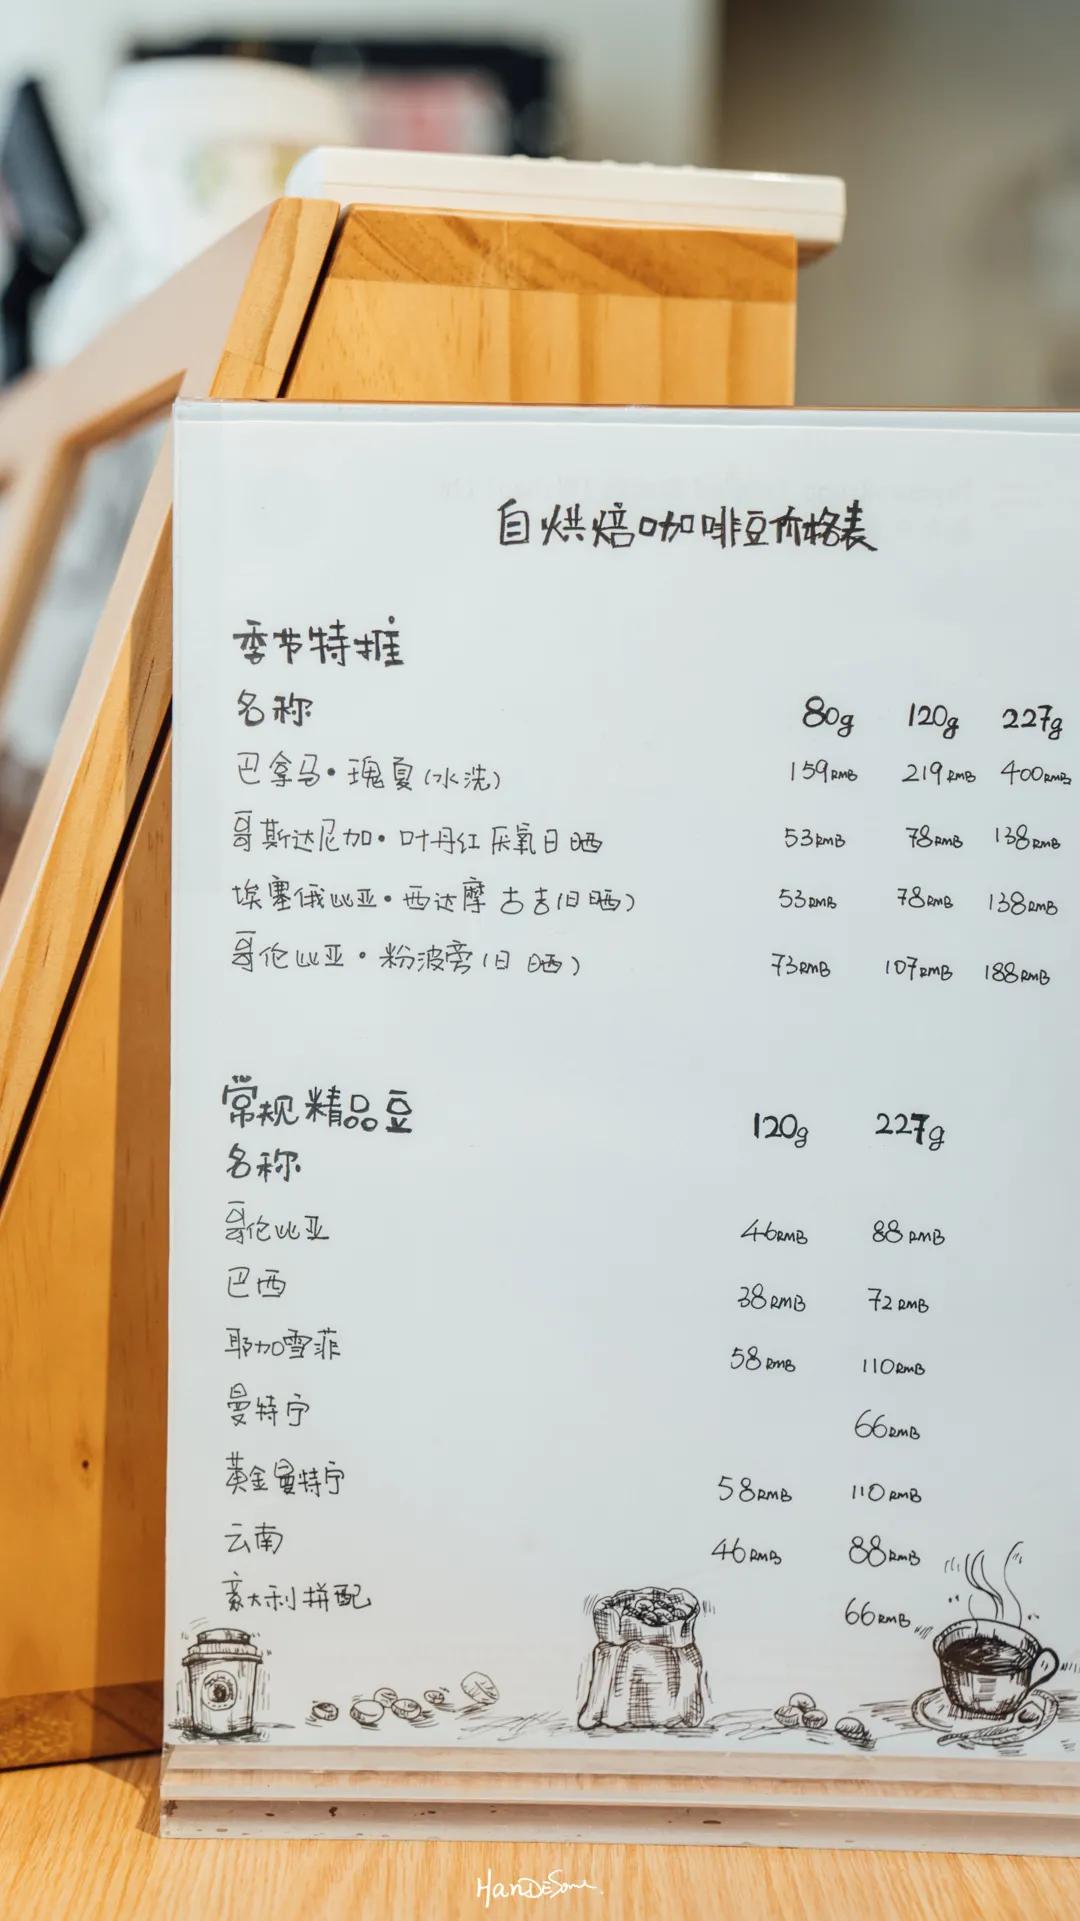 自烘焙咖啡豆价格表
季节特推
名称 80g 120g 227g
巴拿马·瑰夏(水洗) 159RMB 219RMB 400RMB
哥斯达尼加·叶丹红 厌氧日晒 53RMB 78RMB 138RMB
埃塞俄比亚·西达摩 古吉(日晒) 53RMB 78RMB 138RMB
哥伦比亚·粉波旁(日晒) 73RMB 107RMB 188RMB
常规精品豆 120g 227g
名称
哥伦比亚 46RMB 88RMB
巴西 38RMB 72RMB
耶加雪菲 58RMB 110RMB
曼特宁 66RMB
黄金曼特宁 58RMB 110RMB
云南 46RMB 88RMB
意大利拼配 66RMB
HanDeSome.